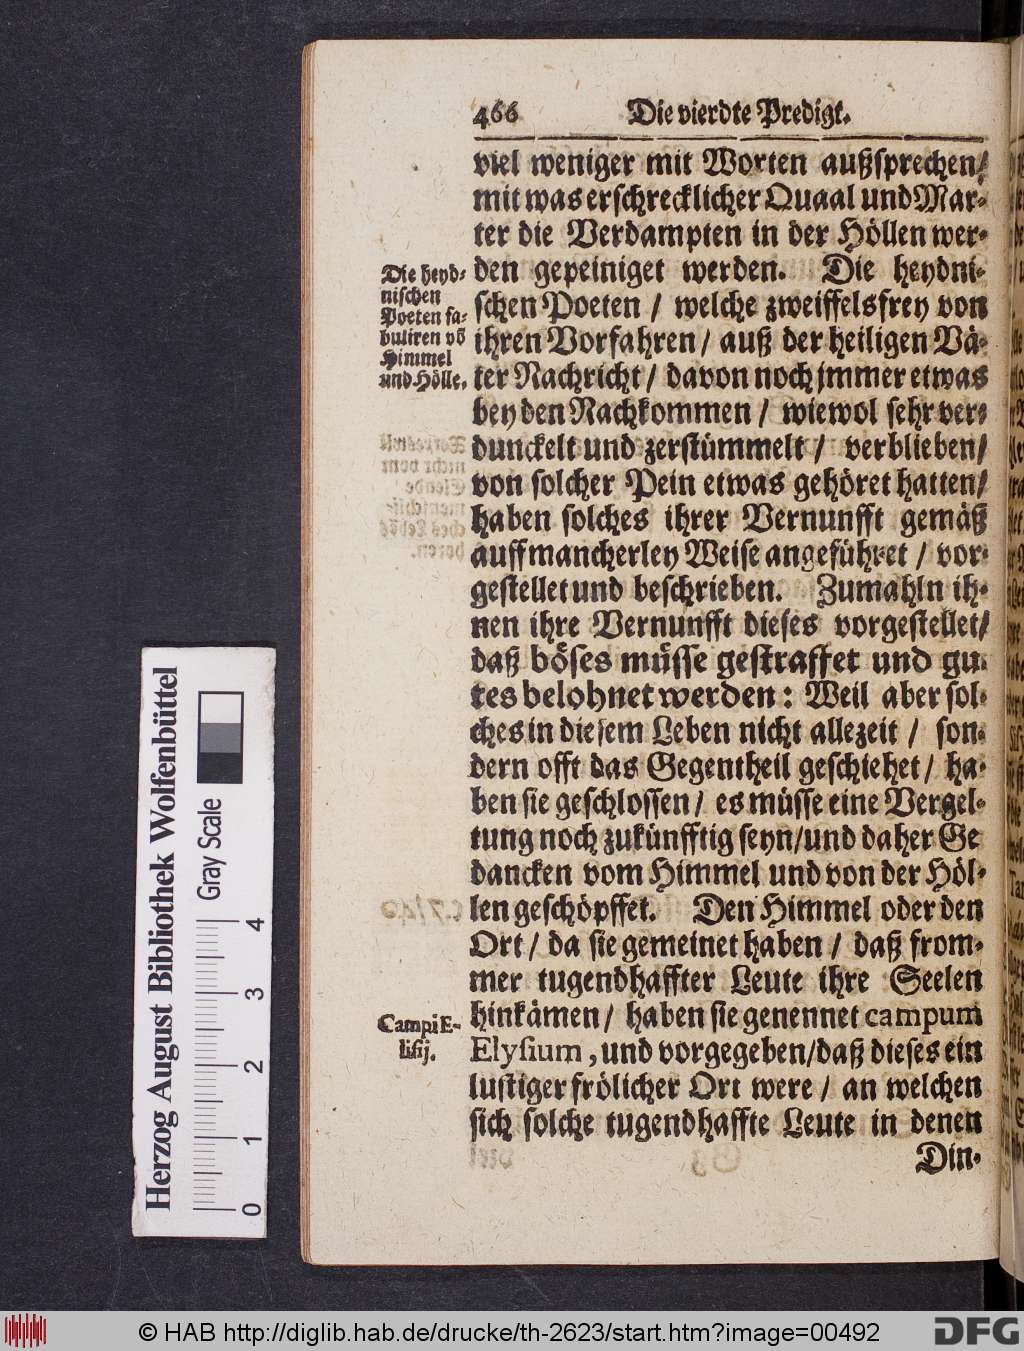 466 Die vierdte Predigt.
viel weniger mit Worten außsprechen/
mit was erschrecklicher Quaal und Mar-
ter die Verdampten in der Höllen wer-
den gepeiniget werden. Die heydni-
schen Poeten / welche zweiffelsfrey von
ihren Vorfahren / auß der heiligen Vä-
ter Nachricht / davon noch jmmer etwas
bey den Nachkommen / wiewol sehr ver-
dunckelt und zerstümmelt / verblieben/
von solcher Pein etwas gehöret hatten/
haben solches ihrer Vernunfft gemäß
auff mancherley Weise angeführet / vor-
gestellet und beschrieben. Zumahln ih-
nen ihre Vernunfft dieses vorgestellet/
daß böses müsse gestraffet und gu-
tes belohnet werden: Weil aber sol-
ches in diesem Leben nicht allezeit / son-
dern offt das Gegentheil geschiehet / ha-
ben sie geschlossen / es müsse eine Vergel-
tung noch zukünfftig seyn/und daher Ge
dancken vom Himmel und von der Höl-
len geschöpffet. Den Himmel oder den
Ort / da sie gemeinet haben / daß from-
mer tugendhaffter Leute ihre Seelen
hinkämen / haben sie genennet campum
Elysium, und vorgegeben/daß dieses ein
lustiger frölicher Ort were / an welchen
sich solche tugendhaffte Leute in denen
Din-
Die heyd-
nischen
Poeten fa-
buliren võ
Himmel
und Hölle.
Campi E-
lisij.
Herzog August Bibliothek Wolfenbüttel
Gray Scale
0 1 2 3 4
© HAB http://diglib.hab.de/drucke/th-2623/start.htm?image=00492
DFG